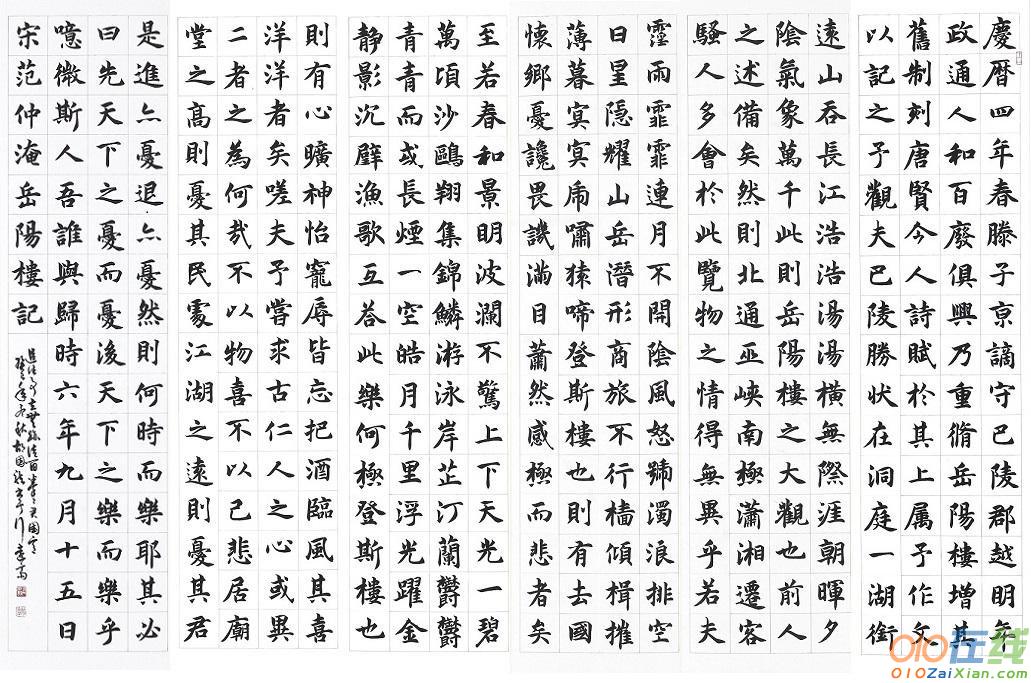 慶曆四年春滕子亰謫守巴陵郡越明年
政通人和百廢俱興乃重脩岳陽樓增其
舊制刻唐賢今人詩賦於其上属予作文
以記之予觀夫巴陵勝状在洞庭一湖銜
遠山吞長江浩浩湯湯橫無際涯朝暉夕
陰氣象萬千此則岳陽樓之大觀也前人
之述備矣然則北通巫峡南極瀟湘遷客
騷人多會於此覽物之情得無異乎若夫
霪雨霏霏連月不開陰風怒號濁浪排空
日星隱耀山岳潛形商旅不行檣傾楫摧
薄暮冥冥乕嘯猿啼登斯樓也則有去國
懷鄉憂讒畏譏滿目蕭然感極而悲者矣
至若春和景明波瀾不驚上下天光一碧
萬頃沙鷗翔集錦鱗游泳岸芷汀蘭鬱鬱
青青而或長煙一空皓月千里浮光躍金
静影沉壁漁歌互答此樂何極登斯樓也
則有心曠神怡寵辱皆忘把酒臨風其喜
洋洋者矣嗟夫予嘗求古仁人之心或異
二者之為何哉不以物喜不以己悲居廟
堂之高則憂其民處江湖之遠則憂其君
是進亦憂退亦憂然則何時而樂耶其必
曰先天下之憂而憂後天下之樂而樂乎
噫微斯人吾誰與歸時六年九月十五日
宋范仲淹岳陽樓記
010在线
010ZaiXian.com